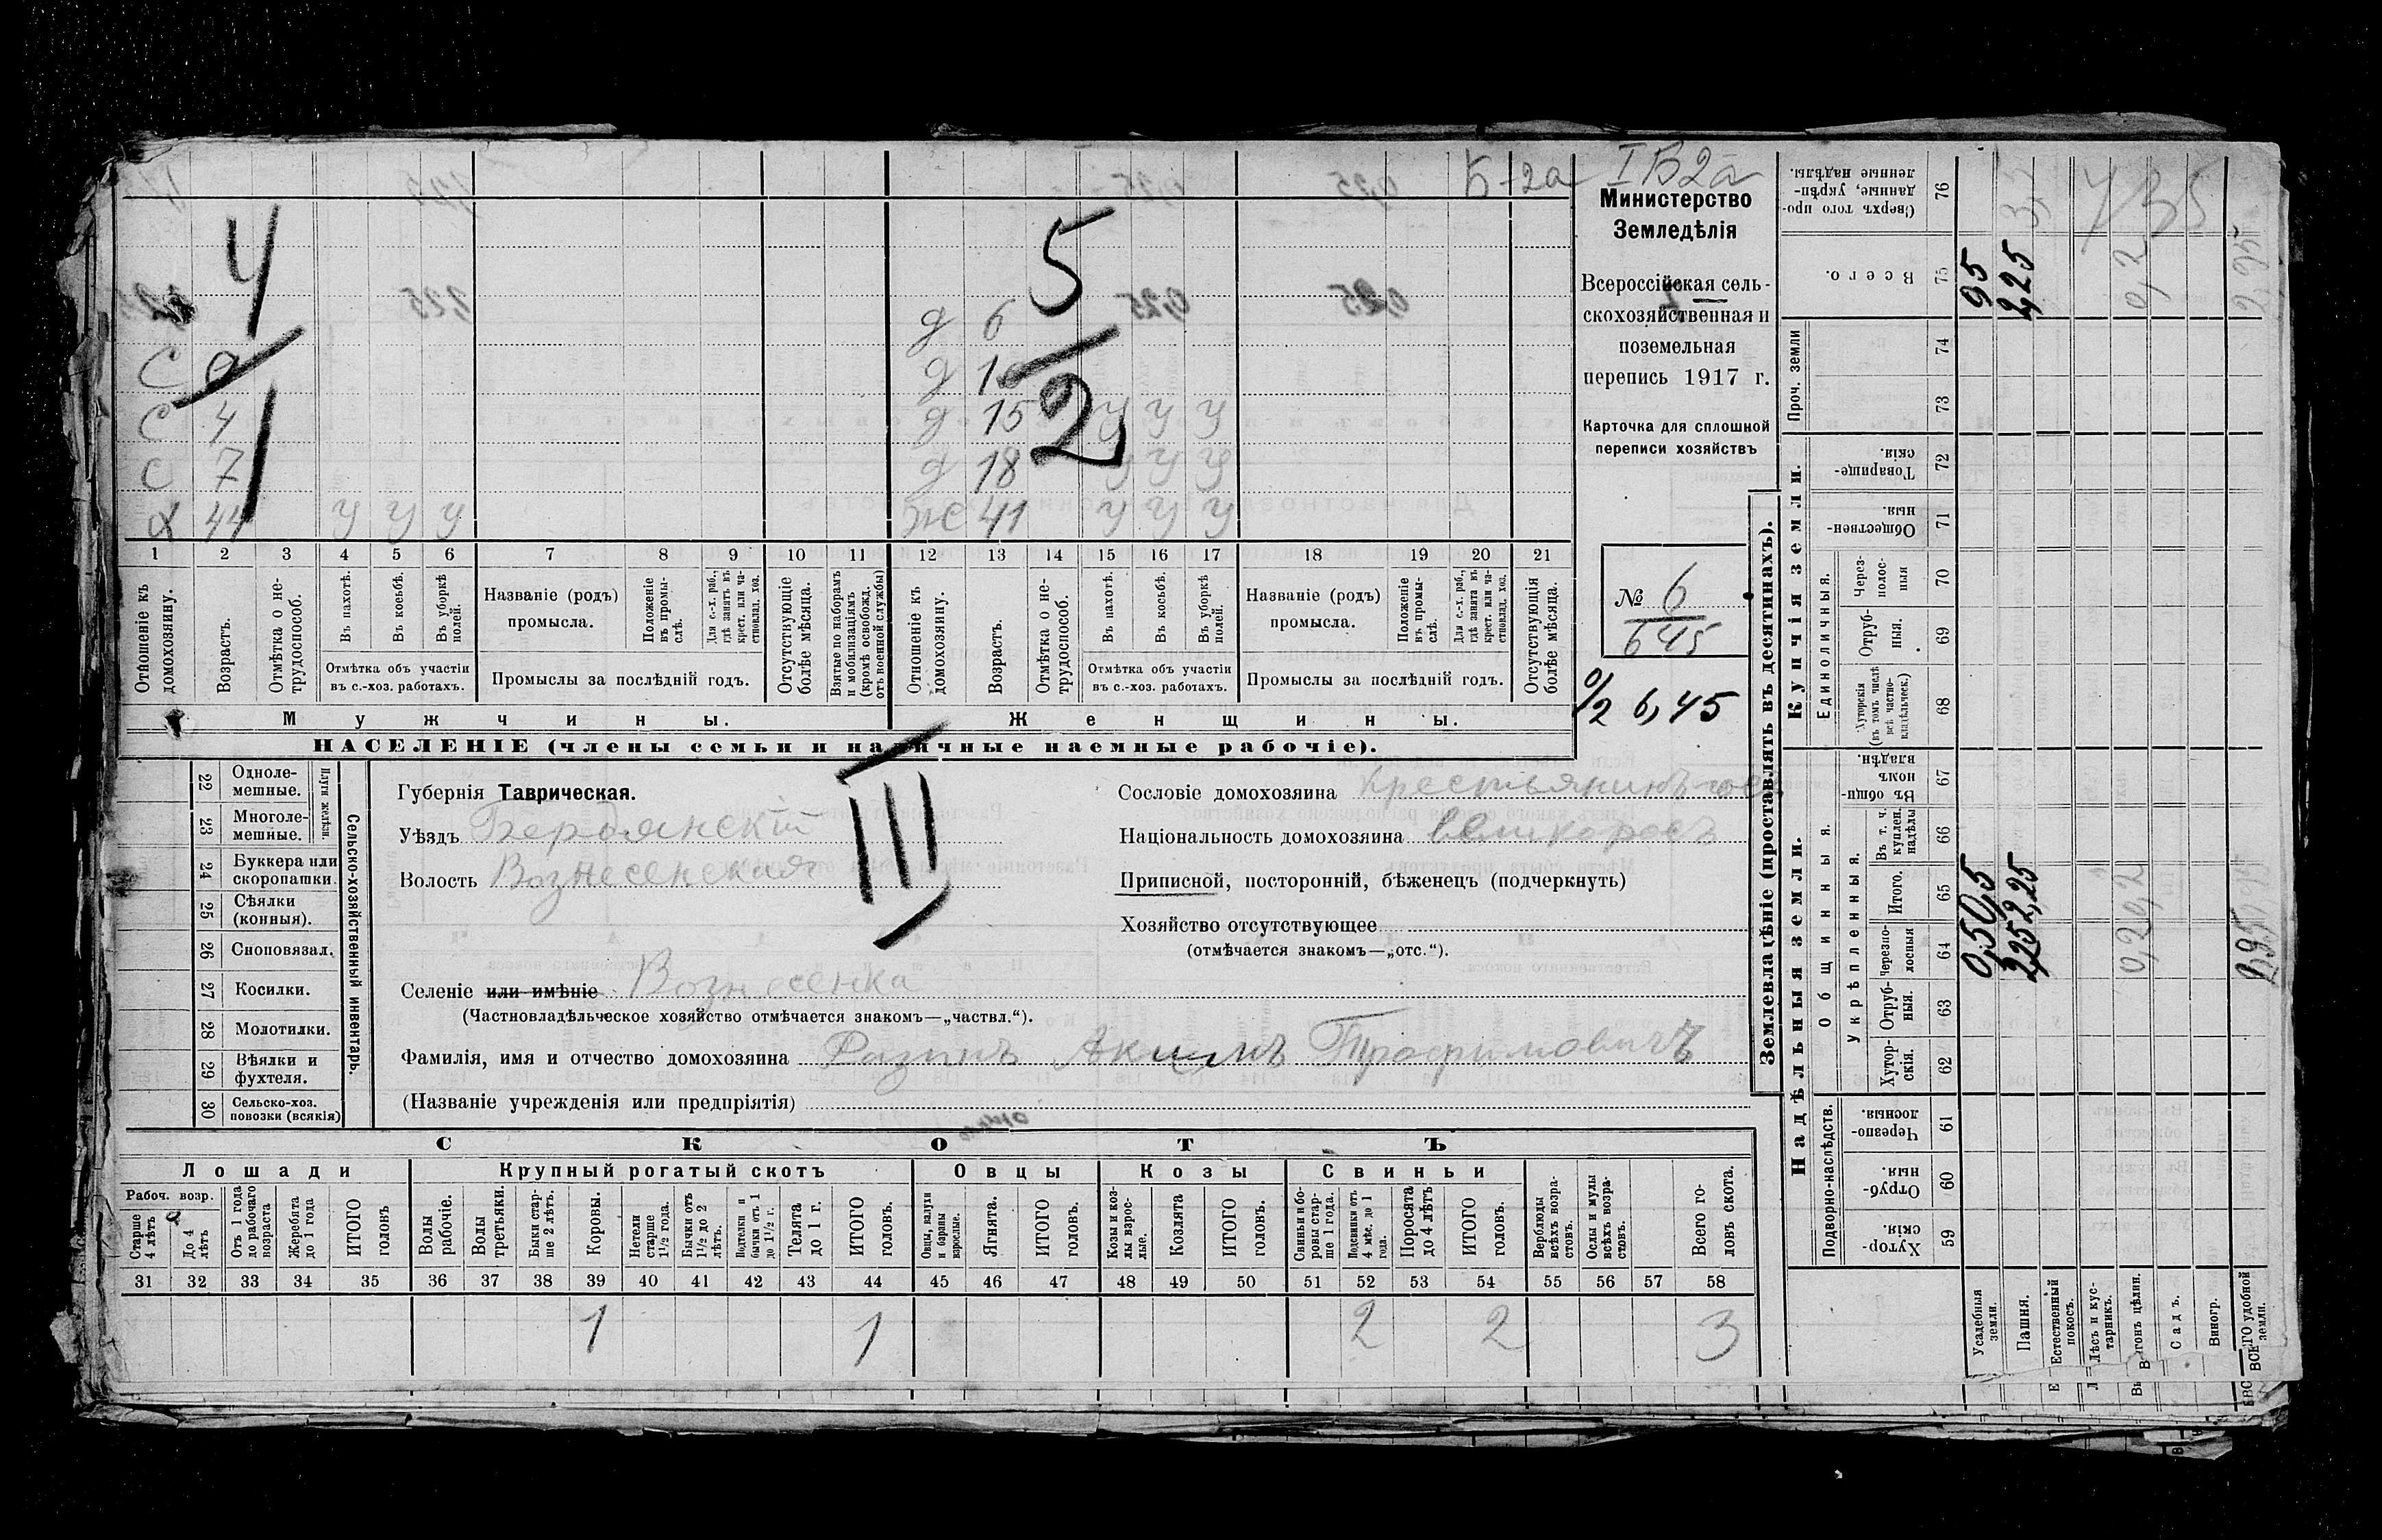 Б-2а
I Б2а
Министерство
Земледѣлія
Всероссійская сель-
скохозяйственная и
поземельная
перепись 1917 г.
Карточка для сплошной
переписи хозяйствъ
№ 6
645
6,45
4
1
5
2
д 6
С
д
С 4
д 15 у у у
С 7
д 18 у у у
44 у у у
Ж 41 у у у
1 2 3 4 5 6 7 8 9 10 11 12 13 14 15 16 17 18 19 20 21
Отношеніе къ домохозяину.
Возрастъ.
Отмѣтка о не-трудоспособ.
Въ пахотѣ.
Въ косьбѣ.
Въ уборкѣ полей.
Отмѣтка объ участіи
въ с.-хоз. работахъ.
Названіе (родъ)
промысла.
Положеніе въ промы-слѣ.
Для с.-х. раб., гдѣ занятъ въ крест. или ча-стновлад. хоз.
Промыслы за послѣдній годъ.
Отсутствующіе болѣе мѣсяца.
Взятые по наборамъ и мобилизаціямъ (кромѣ освобожд. отъ военной службы)
Отношеніе къ домохозяину.
Возрастъ.
Отмѣтка о не-трудоспособ.
Въ пахотѣ.
Въ косьбѣ.
Въ уборкѣ полей.
Отмѣтка объ участіи
въ с.-хоз. работахъ.
Названіе (родъ)
промысла.
Положеніе въ промы-слѣ.
Для с.-х. раб., гдѣ занята въ крест. или ча-стновлад. хоз.
Промыслы за послѣдній годъ.
Отсутствующія болѣе мѣсяца.
Мужчины.
Женщины.
НАСЕЛЕНІЕ (члены семьи и наличные наемные рабочіе).
Сельско-хозяйственный инвентарь.
Плуги желѣзн.
22 Одноле-мешные.
23 Многоле-мешные.
24 Буккера или скоропашки.
25 Сѣялки (конныя).
26 Сноповязал.
27 Косилки.
28 Молотилки.
29 Вѣялки и фухтеля.
30 Сельско-хоз. повозки (всякія)
III
Губернія Таврическая.
Уѣздъ Бердянскій
Волость Вознесенская
Сословіе домохозяина крестьянинъ
Національность домохозяина великоросъ
Приписной, посторонній, бѣженецъ (подчеркнуть)
Хозяйство отсутствующее
(отмѣчается знакомъ—„отс.“).
Селеніе или имѣніе Вознесенка
(Частновладѣльческое хозяйство отмѣчается знакомъ—„частвл.“).
Фамилія, имя и отчество домохозяина Разинъ Акимъ Трофимовичъ
(Названіе учрежденія или предпріятія)
СКОТЪ
Лошади
Крупный рогатый скотъ
Овцы
Козы
Свиньи
Рабоч. возр.
Старше 4 лѣтъ
До 4 лѣтъ
Отъ 1 года до рабочаго возраста
Жеребята до 1 года
ИТОГО головъ
Волы рабочіе.
Волы третьяки.
Быки стар-ше 2 лѣтъ.
Коровы.
Нетели старше 1½ года.
Бычки отъ 1½ до 2 лѣтъ.
Подтелки и бычки отъ 1 до 1½ г.
Телята до 1 г.
ИТОГО головъ.
Овцы, валухи и бараны взрослые.
Ягнята.
ИТОГО головъ.
Козы и коз-лы взрос-лые.
Козлята
ИТОГО головъ.
Свиньи и бо-ровы стар-ше 1 года.
Подсвинки отъ 4 мѣс. до 1 года.
Поросята до 4 лѣтъ
ИТОГО головъ.
Верблюды всѣхъ возра-стовъ.
Ослы и мулы всѣхъ возра-стовъ.
Всего го-ловъ скота.
31 32 33 34 35 36 37 38 39 40 41 42 43 44 45 46 47 48 49 50 51 52 53 54 55 56 57 58
1 1 2 2 3
Землевладѣніе (проставлять въ десятинахъ).
Купчія земли.
Надѣльныя земли.
Проч. земли
Единоличныя.
Общинныя.
Укрѣпленныя.
Подворно-наслѣдств.
Сверхъ того про-данные, укрѣп-ленные надѣлы. 76
Всего. 75
74
73
Товарище-скія. 72
Обществен-ныя. 71
Через-полос-ныя 70
Отруб-ныя. 69
Хуторскія (въ томъ числѣ всѣ частно-владѣльческ.) 68
Въ общин-номъ владѣн. 67
Въ т. ч. куплен. надѣлы 66
Итого. 65
Черезпо-лосныя 64
Отруб-ныя. 63
Хутор-скія. 62
Черезпо-лосныя. 61
Отруб-ныя. 60
Хутор-скія. 59
Усадебныя земли.
Пашня.
Естественный покосъ.
Лѣсъ и кус-тарникъ.
Выгонъ цѣлин.
Садъ.
Виногр.
ВСЕГО удобной земли.
95
2,25
0,2
2,95
0,5 0,5
2,25 2,25
0,2 0,2